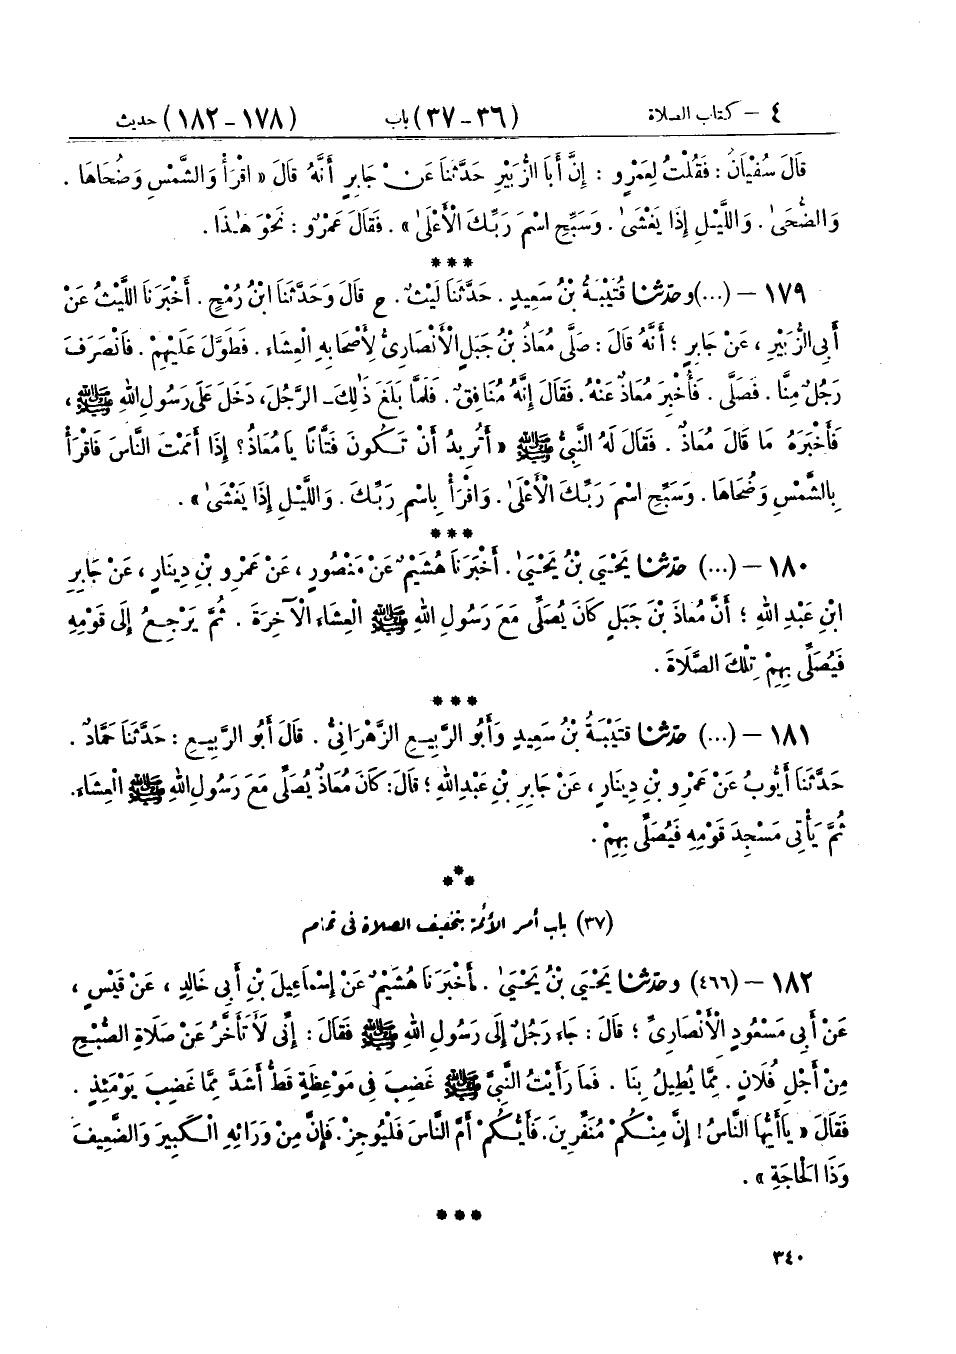 ٤ – كتاب الصلاة (٣٦–٣٧) باب (١٧٨–١٨٢) حديث
قَالَ سُفْيَانُ : فَقُلْتُ لِعَمْرٍو : إِنَّ أَبَا الزُّبَيْرِ حَدَّثَنَا عَنْ جَابِرٍ أَنَّهُ قَالَ « اقْرَأْ وَالشَّمْسِ وَضُحَاهَا .
وَالضُّحَىٰ . وَاللَّيْلِ إِذَا يَغْشَىٰ . وَسَبِّحِ اسْمَ رَبِّكَ الْأَعْلَىٰ » . فَقَالَ عَمْرٌو : نَحْوَ هَٰذَا .
***
١٧٩ – (...) وحَدَّثَنَا قُتَيْبَةُ بْنُ سَعِيدٍ . حَدَّثَنَا لَيْثٌ . ح قَالَ وَحَدَّثَنَا ابْنُ رُمْحٍ . أَخْبَرَنَا اللَّيْثُ عَنْ
أَبِي الزُّبَيْرِ ، عَنْ جَابِرٍ ؛ أَنَّهُ قَالَ : صَلَّى مُعَاذُ بْنُ جَبَلٍ الْأَنْصَارِيُّ لِأَصْحَابِهِ الْعِشَاءَ . فَطَوَّلَ عَلَيْهِمْ . فَانْصَرَفَ
رَجُلٌ مِنَّا . فَصَلَّى . فَأُخْبِرَ مُعَاذٌ عَنْهُ . فَقَالَ إِنَّهُ مُنَافِقٌ . فَلَمَّا بَلَغَ ذَٰلِكَ الرَّجُلَ ، دَخَلَ عَلَى رَسُولِ اللهِ ﷺ ،
فَأَخْبَرَهُ مَا قَالَ مُعَاذٌ . فَقَالَ لَهُ النَّبِيُّ ﷺ « أَتُرِيدُ أَنْ تَكُونَ فَتَّانًا يَا مُعَاذُ ؟ إِذَا أَمَمْتَ النَّاسَ فَاقْرَأْ
بِالشَّمْسِ وَضُحَاهَا . وَسَبِّحِ اسْمَ رَبِّكَ الْأَعْلَىٰ . وَاقْرَأْ بِاسْمِ رَبِّكَ . وَاللَّيْلِ إِذَا يَغْشَىٰ » .
***
١٨٠ – (...) حَدَّثَنَا يَحْيَىٰ بْنُ يَحْيَىٰ . أَخْبَرَنَا هُشَيْمٌ عَنْ مَنْصُورٍ ، عَنْ عَمْرِو بْنِ دِينَارٍ ، عَنْ جَابِرِ
ابْنِ عَبْدِ اللهِ ؛ أَنَّ مُعَاذَ بْنَ جَبَلٍ كَانَ يُصَلِّي مَعَ رَسُولِ اللهِ ﷺ الْعِشَاءَ الْآخِرَةَ . ثُمَّ يَرْجِعُ إِلَى قَوْمِهِ
فَيُصَلِّي بِهِمْ تِلْكَ الصَّلَاةَ .
***
١٨١ – (...) حَدَّثَنَا قُتَيْبَةُ بْنُ سَعِيدٍ وَأَبُو الرَّبِيعِ الزَّهْرَانِيُّ . قَالَ أَبُو الرَّبِيعِ : حَدَّثَنَا حَمَّادٌ .
حَدَّثَنَا أَيُّوبُ عَنْ عَمْرِو بْنِ دِينَارٍ ، عَنْ جَابِرِ بْنِ عَبْدِ اللهِ ؛ قَالَ : كَانَ مُعَاذٌ يُصَلِّي مَعَ رَسُولِ اللهِ ﷺ الْعِشَاءَ .
ثُمَّ يَأْتِي مَسْجِدَ قَوْمِهِ فَيُصَلِّي بِهِمْ .
***
(٣٧) باب أمر الأئمة بتخفيف الصلاة فى تمام
١٨٢ – (٤٦٦) وحَدَّثَنَا يَحْيَىٰ بْنُ يَحْيَىٰ . أَخْبَرَنَا هُشَيْمٌ عَنْ إِسْمَاعِيلَ بْنِ أَبِي خَالِدٍ ، عَنْ قَيْسٍ ،
عَنْ أَبِي مَسْعُودٍ الْأَنْصَارِيِّ ؛ قَالَ : جَاءَ رَجُلٌ إِلَى رَسُولِ اللهِ ﷺ فَقَالَ : إِنِّي لَأَتَأَخَّرُ عَنْ صَلَاةِ الصُّبْحِ
مِنْ أَجْلِ فُلَانٍ . مِمَّا يُطِيلُ بِنَا . فَمَا رَأَيْتُ النَّبِيَّ ﷺ غَضِبَ فِي مَوْعِظَةٍ قَطُّ أَشَدَّ مِمَّا غَضِبَ يَوْمَئِذٍ .
فَقَالَ « يَا أَيُّهَا النَّاسُ ! إِنَّ مِنْكُمْ مُنَفِّرِينَ . فَأَيُّكُمْ أَمَّ النَّاسَ فَلْيُوجِزْ . فَإِنَّ مِنْ وَرَائِهِ الْكَبِيرَ وَالضَّعِيفَ
وَذَا الْحَاجَةِ » .
***
٣٤٠